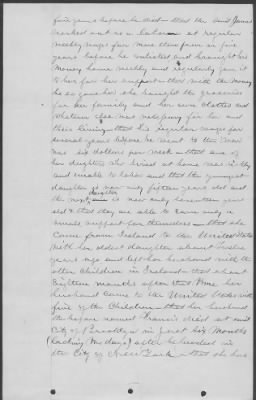 five years before he died - that the said James
worked out as a laborer at regular
weekly wages for more than four or five
years before he enlisted and brought his
money home weekly and regularly gave it
to her for her support - that with the money
he so gave her she bought the groceries
for her family and her own clothes and
whatever else was necessary for her and
their living - that his regular wages for
several years before he went to the War
was six dollars per week - that one of
her daughters who lived at home was sickly
and unable to labor and that the youngest
daughter is now only fifteen years old and
the next daughter is now only seventeen years
old & that they are able to earn only a
small support for themselves - that she
came from Ireland to the United States
with her oldest daughter about twelve
years ago and left her husband with the
other children in Ireland - that about
Eighteen months after that time her
husband came to the United States with
five of the Children - that her husband
the before named Francis died at said
City of Brooklyn in just six months
(lacking two days) after he landed in
the City of New York - that she has